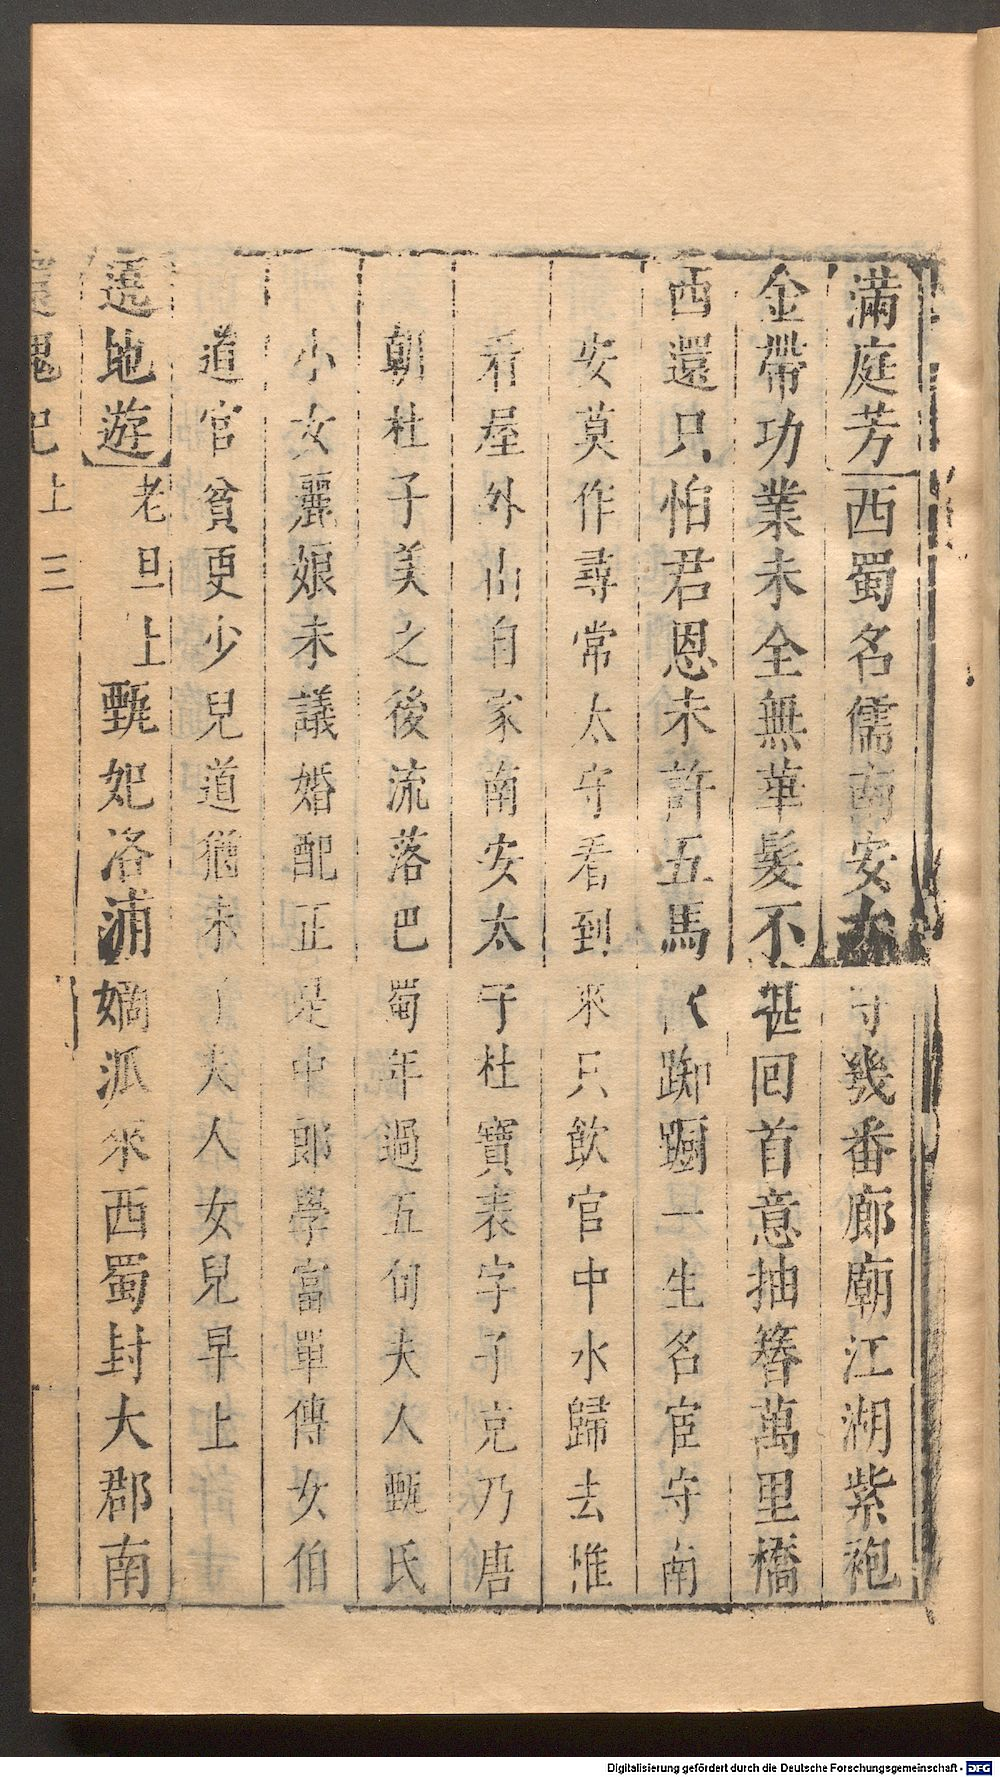 滿庭芳 西蜀名儒南安太守幾番廊廟江湖紫袍
金帶功業未全無華髮不堪回首意抽簪萬里橋
西還只怕君恩未許五馬欠踟躕一生名宦守南
安莫作尋常太守看到來只飲官中水歸去惟
看屋外山自家南安太守杜寶表字子克乃唐
朝杜子美之後流落巴蜀年過五旬夫人甄氏
小女麗娘未議婚配正是中郎學富單傳女伯
道官貧更少兒道猶未了夫人女兒早上
遶地遊 老旦上 甄妃洛浦嫡派來西蜀封大郡南
還魂記 上 三
Digitalisierung gefördert durch die Deutsche Forschungsgemeinschaft - DFG